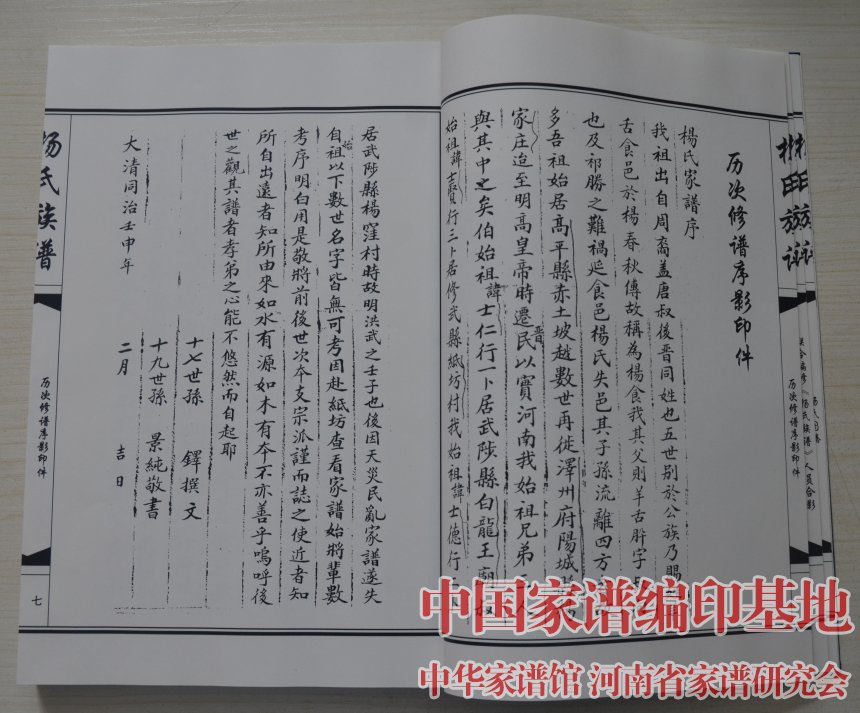 历次修谱序影印件
楊氏家譜序
我祖出自周裔盖唐叔後晋同姓也五世别於公族乃賜
舌食邑於楊春秋傳故稱為楊食我其父則羊舌肸字
也及祁勝之難禍延食邑楊氏失邑其子孫流離四方
多吾祖始居高平縣赤土坡越數世再徙澤州府陽城
家庄迨至明高皇帝時遷民以實河南我始祖兄弟三人
晋
與其中之矣伯始祖諱士仁行一卜居武陟縣白龍王廟叔
始祖諱士賢行三卜居修武縣紙坊村我始祖諱士德行二
居武陟縣楊窪村時故明洪武之壬子也後因天災民亂家譜遂失
自始祖以下數世名字皆無可考因赴紙坊查看家譜始將輩數
考序明白用是敬將前後世次夲支宗派謹而誌之使近者知
所自出遠者知所由來如水有源如木有夲不亦善乎嗚呼後
世之觀其譜者孝弟之心能不悠然而自起耶
十七世孫 鐸撰文
十九世孫 景純敬書
大清同治壬申年 二月 吉日
杨氏族谱
历次修谱序影印件
七
历次修谱序影印件
联合编修《杨氏族谱》人员合影
中国家谱编印基地
中华家谱馆 河南省家谱研究会